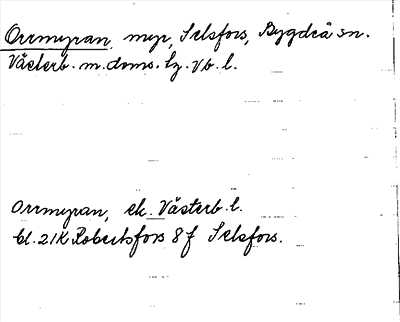 Orrmyran, myr, Selsfors, Bygdeå sn.
Västerb. m. doms. lg. Vb. l.
Orrmyran, ek. Västerb. l.
bl. 21K Robertsfors 8 f Selsfors.